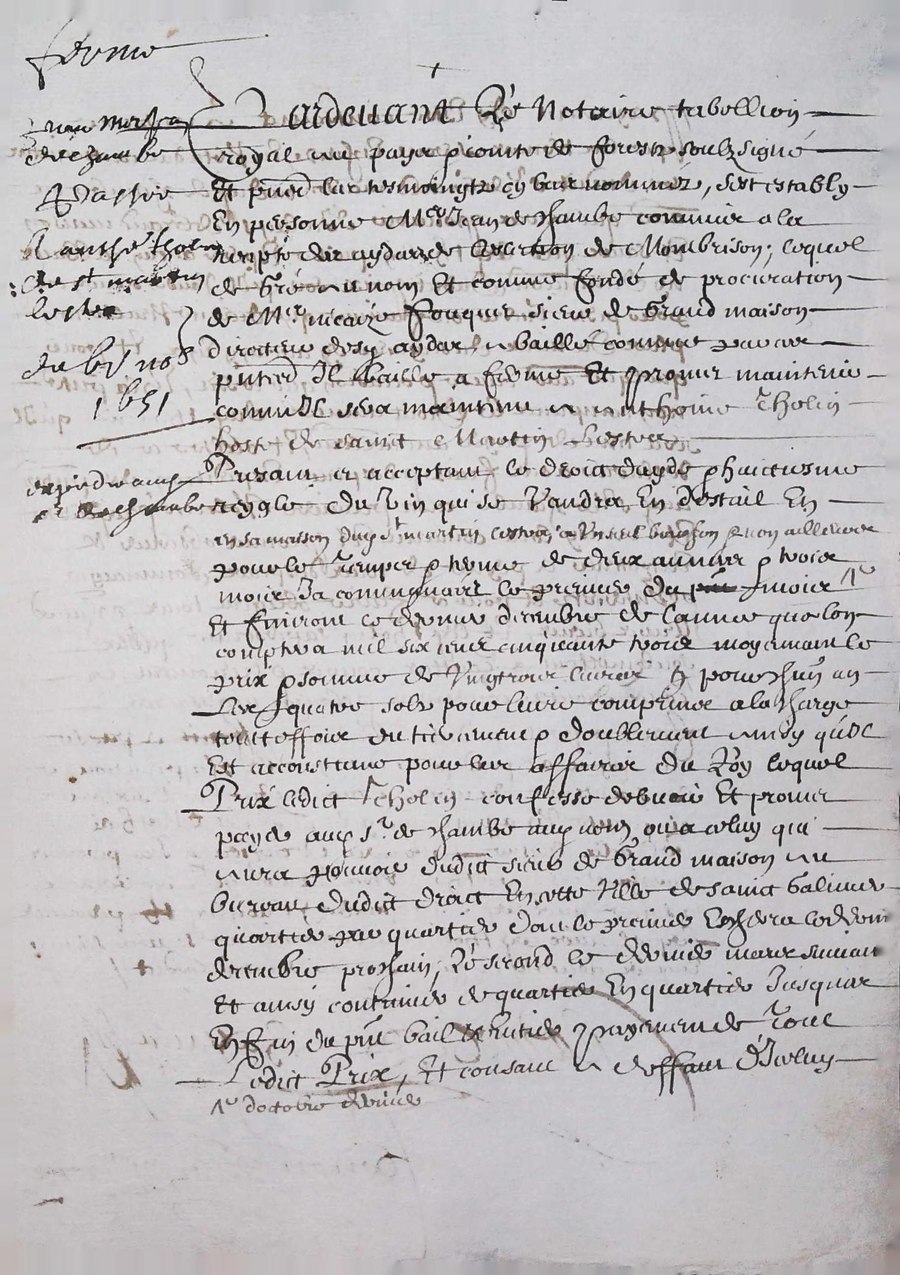 ferme
de chambe
passée
a anthe tholin
de st martin
lestra
du bvj nos
1651
Pardevant Le Notaire tabellion
royal au pays & comté de forestz soubzsigné
Et pnts les tesmoingtz cy bas nommez, s'est estably
En personne Mre Jean de Chambe commis a la
recepte des aydes de l'eslection de Mombrison, lequel
de gré au nom Et comme fondé de procuration
de Mre nicaize fouquer sieur de Grand maison
directeur desd aydes, a baillé comme par ces
pntes Il baille a ferme Et promet maintenir
comme il sera maintenu a anthoine Tholin
hoste de sainct Martin lestra
Presant et acceptant le droict d'ayde & huictiesme
reigle du vin qui se vandra En destail En
en sa maison dud st martin lestra & non ailleurs
pour le temps & terme de deux annees & trois
mois Ja commancés le premier du mois
Et finiront le dernier decembre de l'annee que l'on
comptera mil six cens cinquante trois moyenant le
prix & somme de Vingt trois livres pour chun an
Les quatre solz pour livre comprins a la charge
toutteffois du tiercement & doublement ainsy qu'il
Est accoustumé pour les affaires du Roy lequel
Prix ledict Tholin confesse debvoir Et promet
payer aud sr de Chambe aud nom ou a celuy qui
aura pouvoir dudict sieur de Grand maison au
bureau dudict droict En cette Ville de sainct Galmier
quartier par quartier dont le premier Escherra le dernier
decembre prochain, Le second le dernier mars suivant
Et ainsy continuer de quartier En quartier Jusques
En fin du pnt bail & entier payement de tout
Ledict Prix, Et consant a deffaut d'Iceluy
1er d'octobre dernier